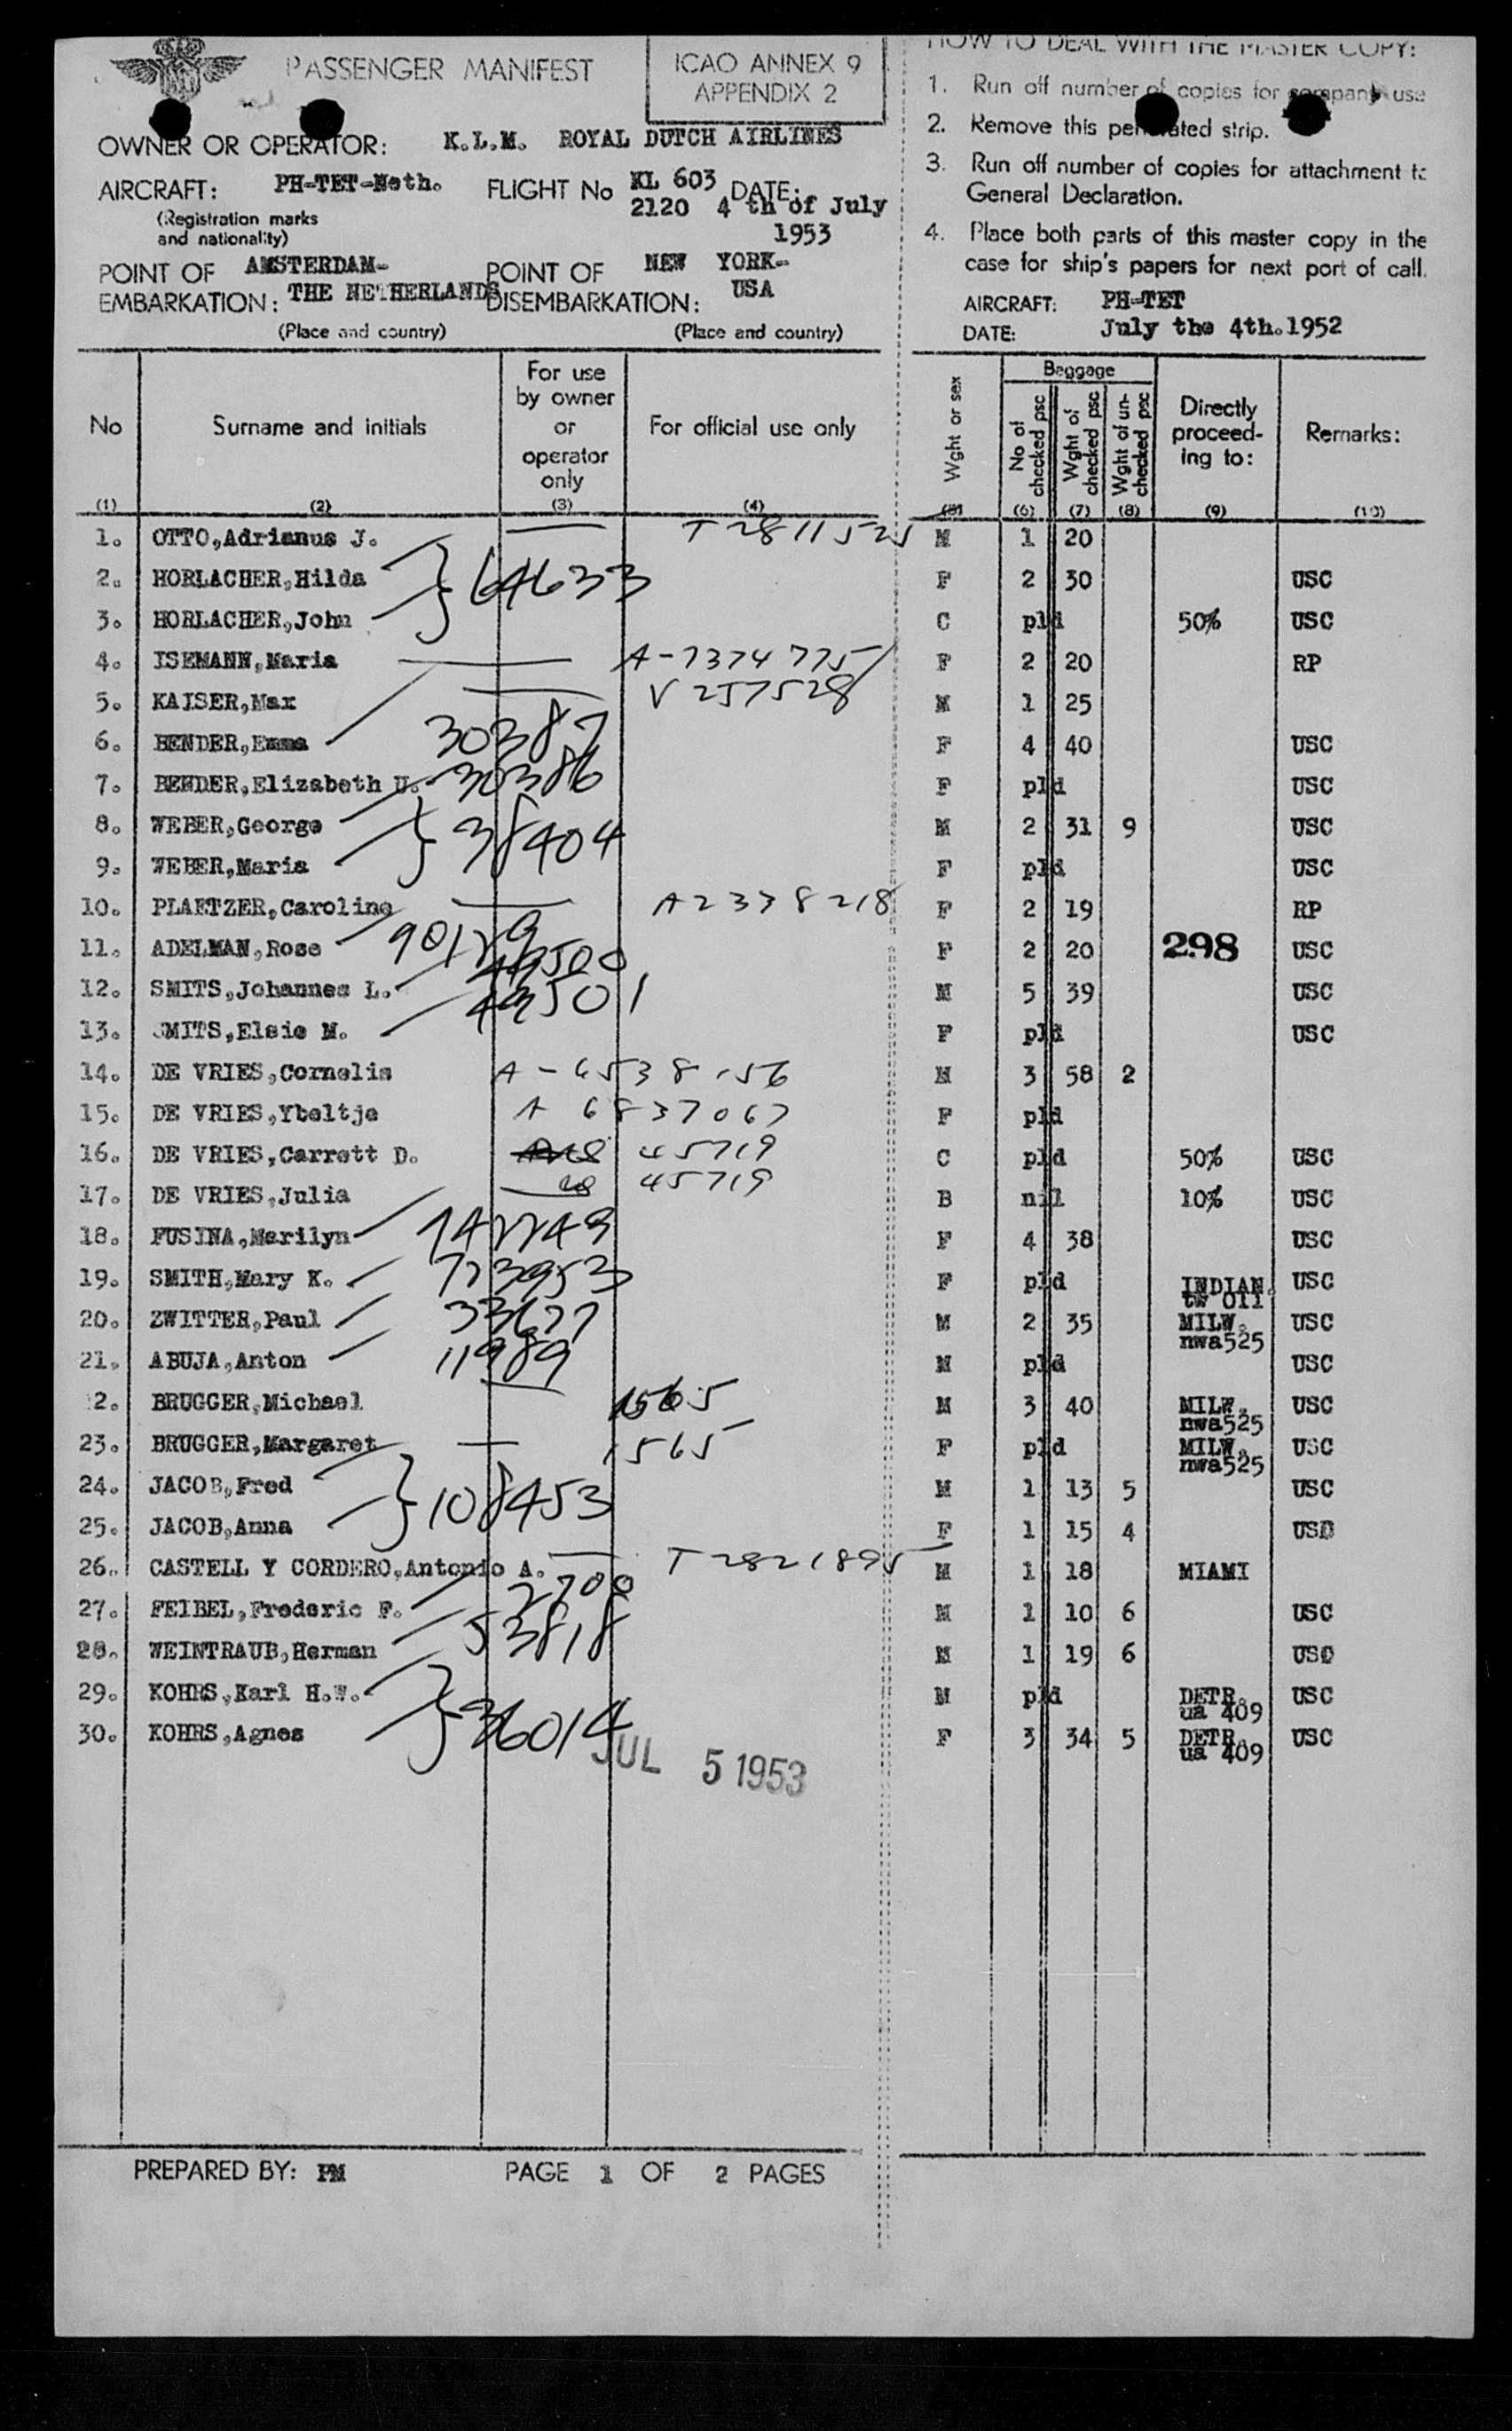 PASSENGER MANIFEST
ICAO ANNEX 9
APPENDIX 2
OWNER OR OPERATOR: K.L.M. ROYAL DUTCH AIRLINES
AIRCRAFT: PH-TET-Neth. FLIGHT No KL 603 DATE:
(Registration marks 2120 4 th of July
and nationality) 1953
POINT OF AMSTERDAM- POINT OF NEW YORK-
EMBARKATION: THE NETHERLANDS DISEMBARKATION: USA
(Place and country) (Place and country)
HOW TO DEAL WITH THE MASTER COPY:
1. Run off number of copies for company use
2. Remove this strip.
3. Run off number of copies for attachment to
General Declaration.
4. Place both parts of this master copy in the
case for ship's papers for next port of call.
AIRCRAFT: PH-TET
DATE: July the 4th.1952
No Surname and initials For use by owner or operator only For official use only Wght or sex Baggage No of checked psc Wght of checked psc Wght of un-checked psc Directly proceed-ing to: Remarks:
(1) (2) (3) (4) (5) (6) (7) (8) (9) (10)
1. OTTO,Adrianus J. T 2811525 M 1 20
2. HORLACHER,Hilda 64633 F 2 30 USC
3. HORLACHER,John C pld 50% USC
4. ISEMANN,Maria A-7374775 F 2 20 RP
5. KAISER,Max V 257528 M 1 25
6. BENDER,Emma 30387 F 4 40 USC
7. BENDER,Elizabeth U. 30386 F pld USC
8. WEBER,George 38404 M 2 31 9 USC
9. WEBER,Maria F pld USC
10. PLAETZER,Caroline A2338218 F 2 19 RP
11. ADELMAN,Rose 90129 F 2 20 298 USC
12. SMITS,Johannes L. 49500 M 5 39 USC
13. SMITS,Elsie M. 49501 F pld USC
14. DE VRIES,Cornelis M 3 58 2
15. DE VRIES,Ybeltje A 6837067 F pld
16. DE VRIES,Garrett D. 45719 C pld 50% USC
17. DE VRIES,Julia 45719 B nil 10% USC
18. FUSINA,Marilyn F 4 38 USC
19. SMITH,Mary K. F pld INDIAN. tw 011 USC
20. ZWITTER,Paul 33677 M 2 35 MILW. nwa525 USC
21. ABUJA,Anton 11989 M pld USC
2. BRUGGER,Michael 1565 M 3 40 MILW. nwa525 USC
23. BRUGGER,Margaret 1565 F pld MILW. nwa525 USC
24. JACOB,Fred 108453 M 1 13 5 USC
25. JACOB,Anna F 1 15 4 USD
26. CASTELL Y CORDERO,Antonio A. T 2821895 M 1 18 MIAMI
27. FEIBEL,Frederic F. 2700 M 1 10 6 USC
28. WEINTRAUB,Herman 53818 M 1 19 6 USC
29. KOHRS,Karl H.W. 36014 M pld DETR. ua 409 USC
30. KOHRS,Agnes F 3 34 5 DETR. ua 409 USC
JUL 5 1953
PREPARED BY: PM PAGE 1 OF 2 PAGES